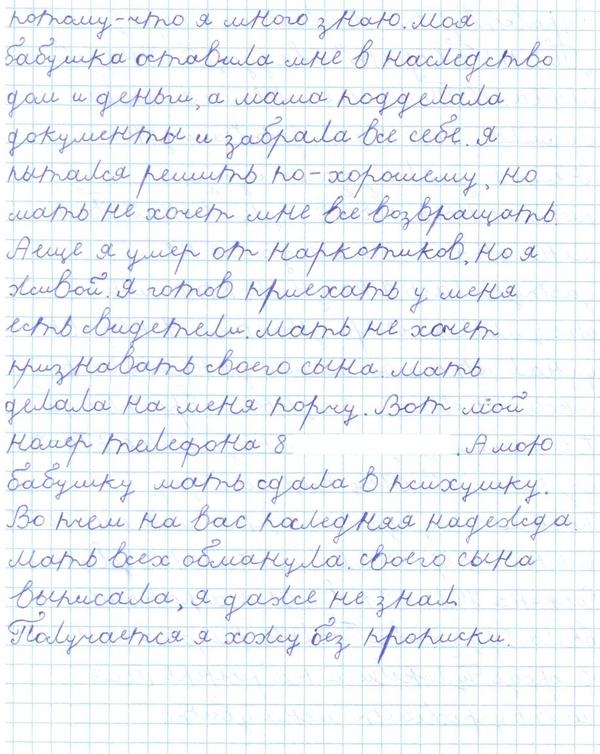 потому-что я много знаю. моя
бабушка оставила мне в наследство
дом и деньги, а мама подделала
документы и забрала все себе. я
пытался решить по-хорошему, но
мать не хочет мне все возвращать.
А еще я умер от наркотиков, но я
живой. Я готов приехать у меня
есть свидетели. Мать не хочет
признавать своего сына. мать
делала на меня порчу. Вот мой
номер телефона 8 . А мою
бабушку мать сдала в психушку.
Во пчем на вас последняя надежда.
Мать всех обманула. своего сына
выписала, я даже не знал.
Получается я хожу без прописки.